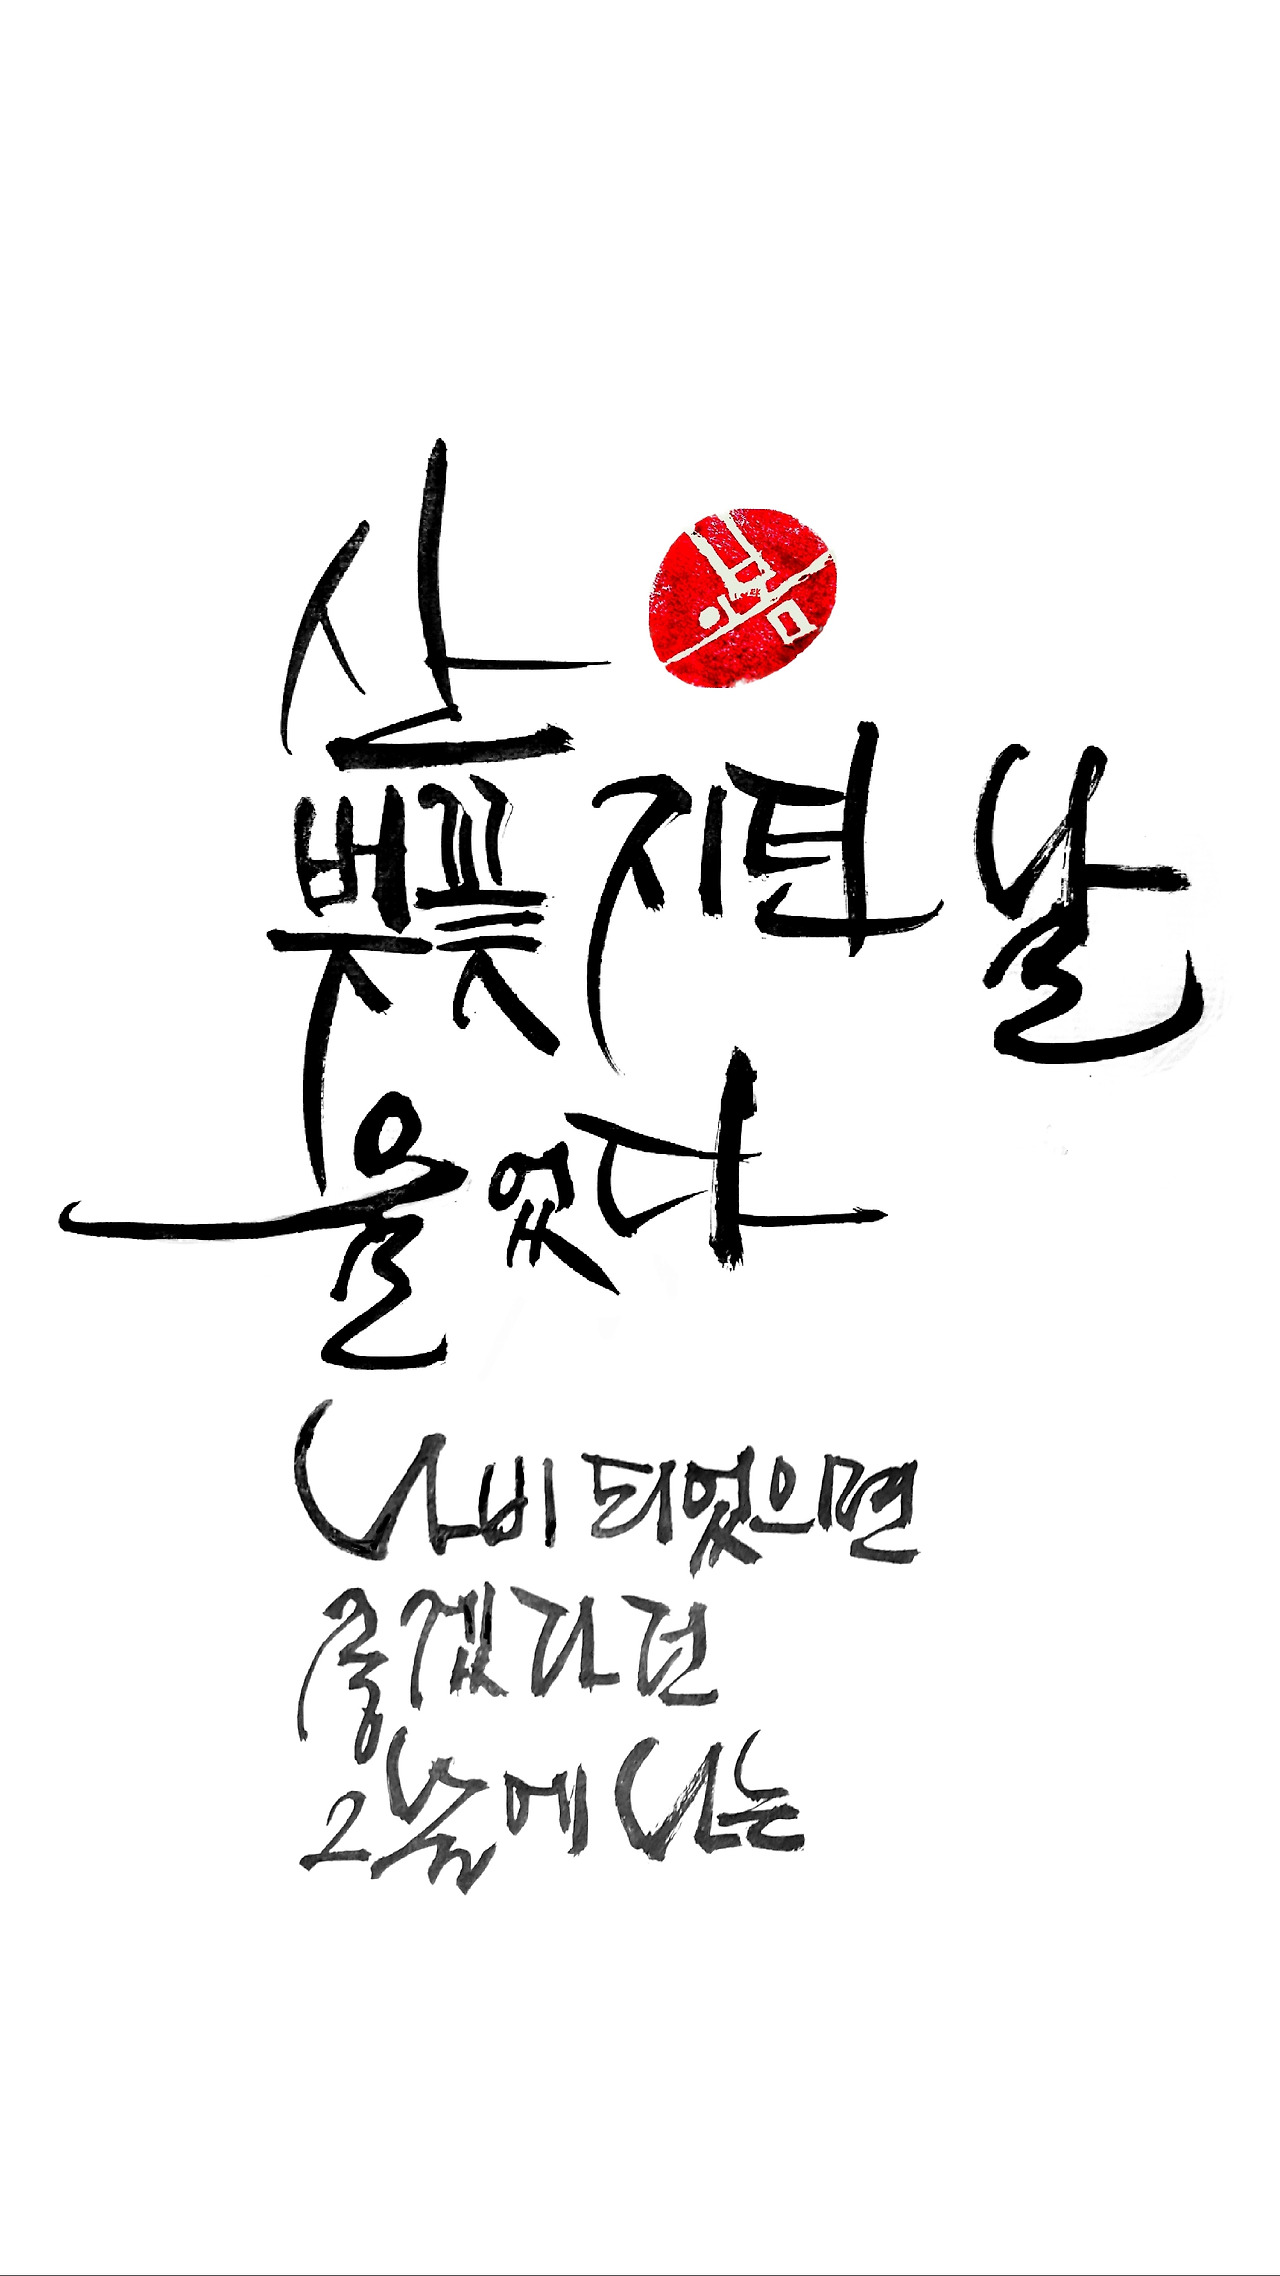 산
벚꽃 지던 날
울었다
나비 되었으면
좋겠다던
그날에 나는